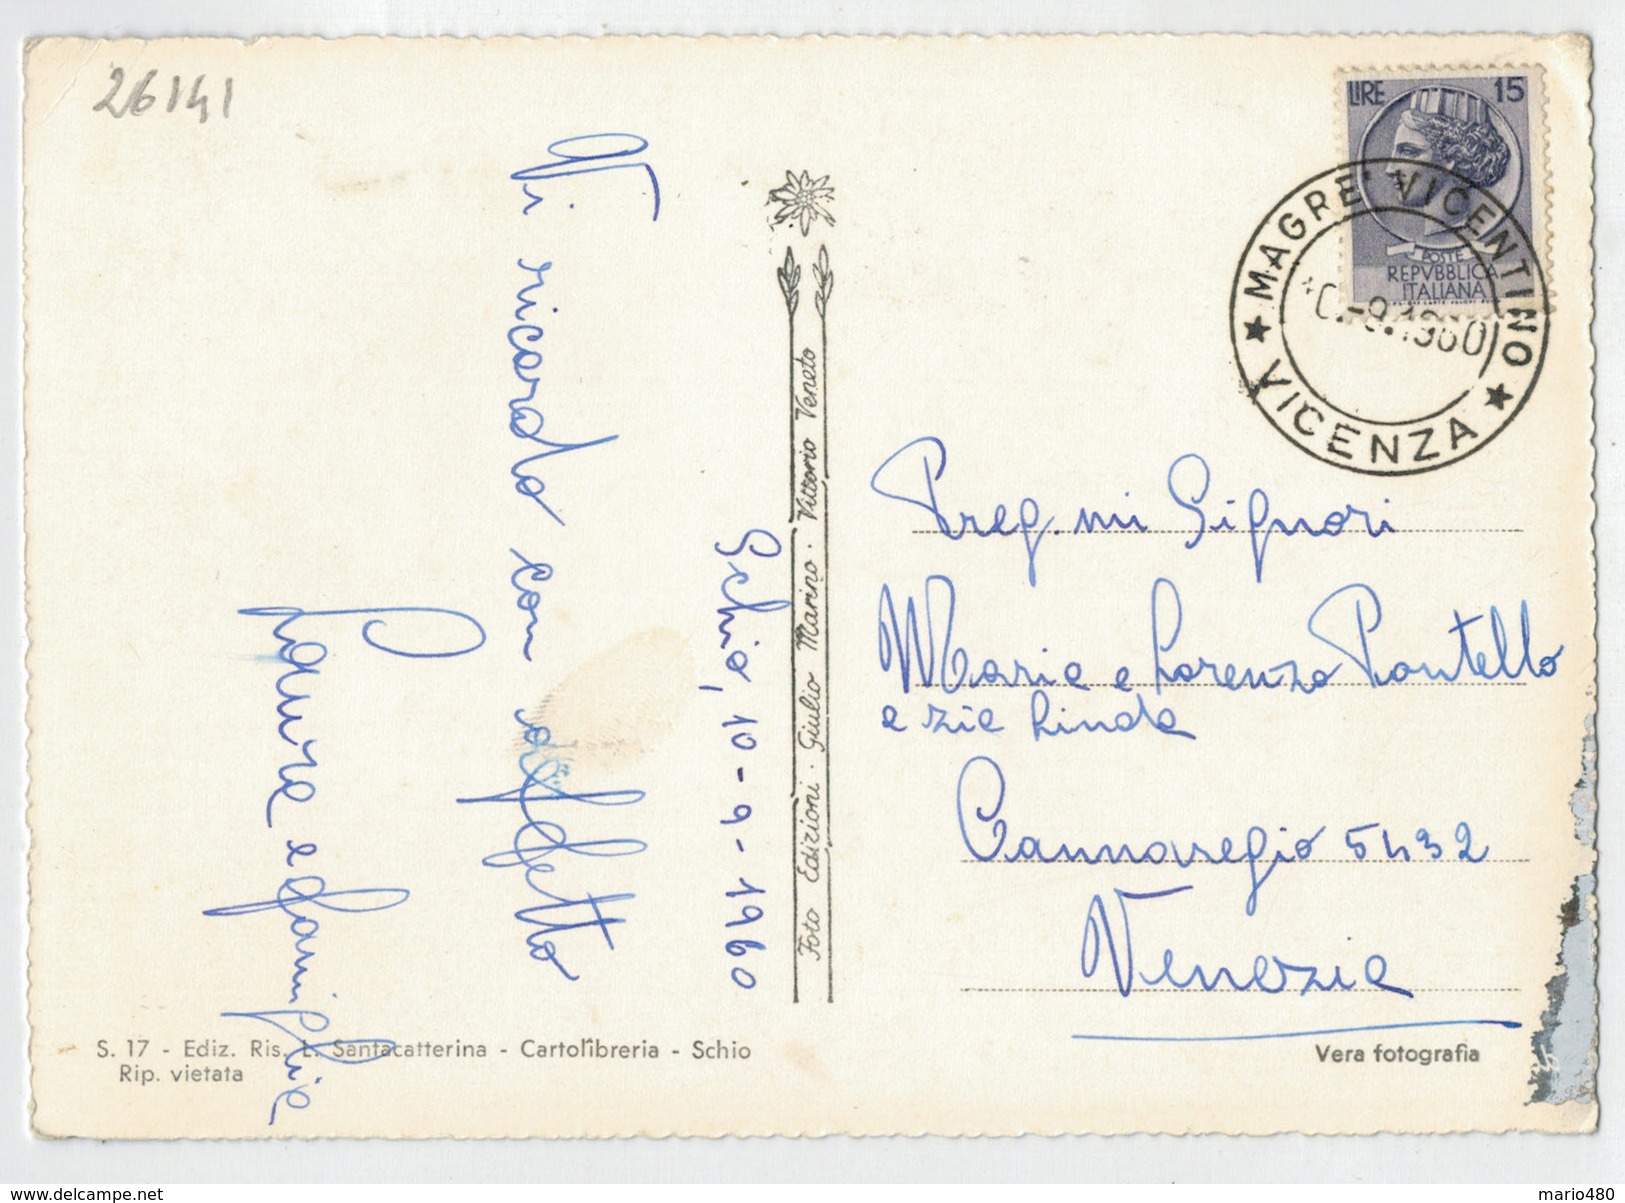 26141
Schio, 10-9-1960
Vi ricordo con affetto
Laura e famiglia
Foto Edizioni · Giulio Marino · Vittorio Veneto
S. 17 - Ediz. Ris. L. Santacatterina - Cartolibreria - Schio
Rip. vietata
LIRE 15
POSTE
REPVBBLICA
ITALIANA
MAGRE' VICENTINO
-9.1960
★ VICENZA ★
Preg.mi Signori
Maria e Lorenzo Pantello
e zia Linda
Cannaregio 5432
Venezia
Vera fotografia
www.delcampe.net
mario480